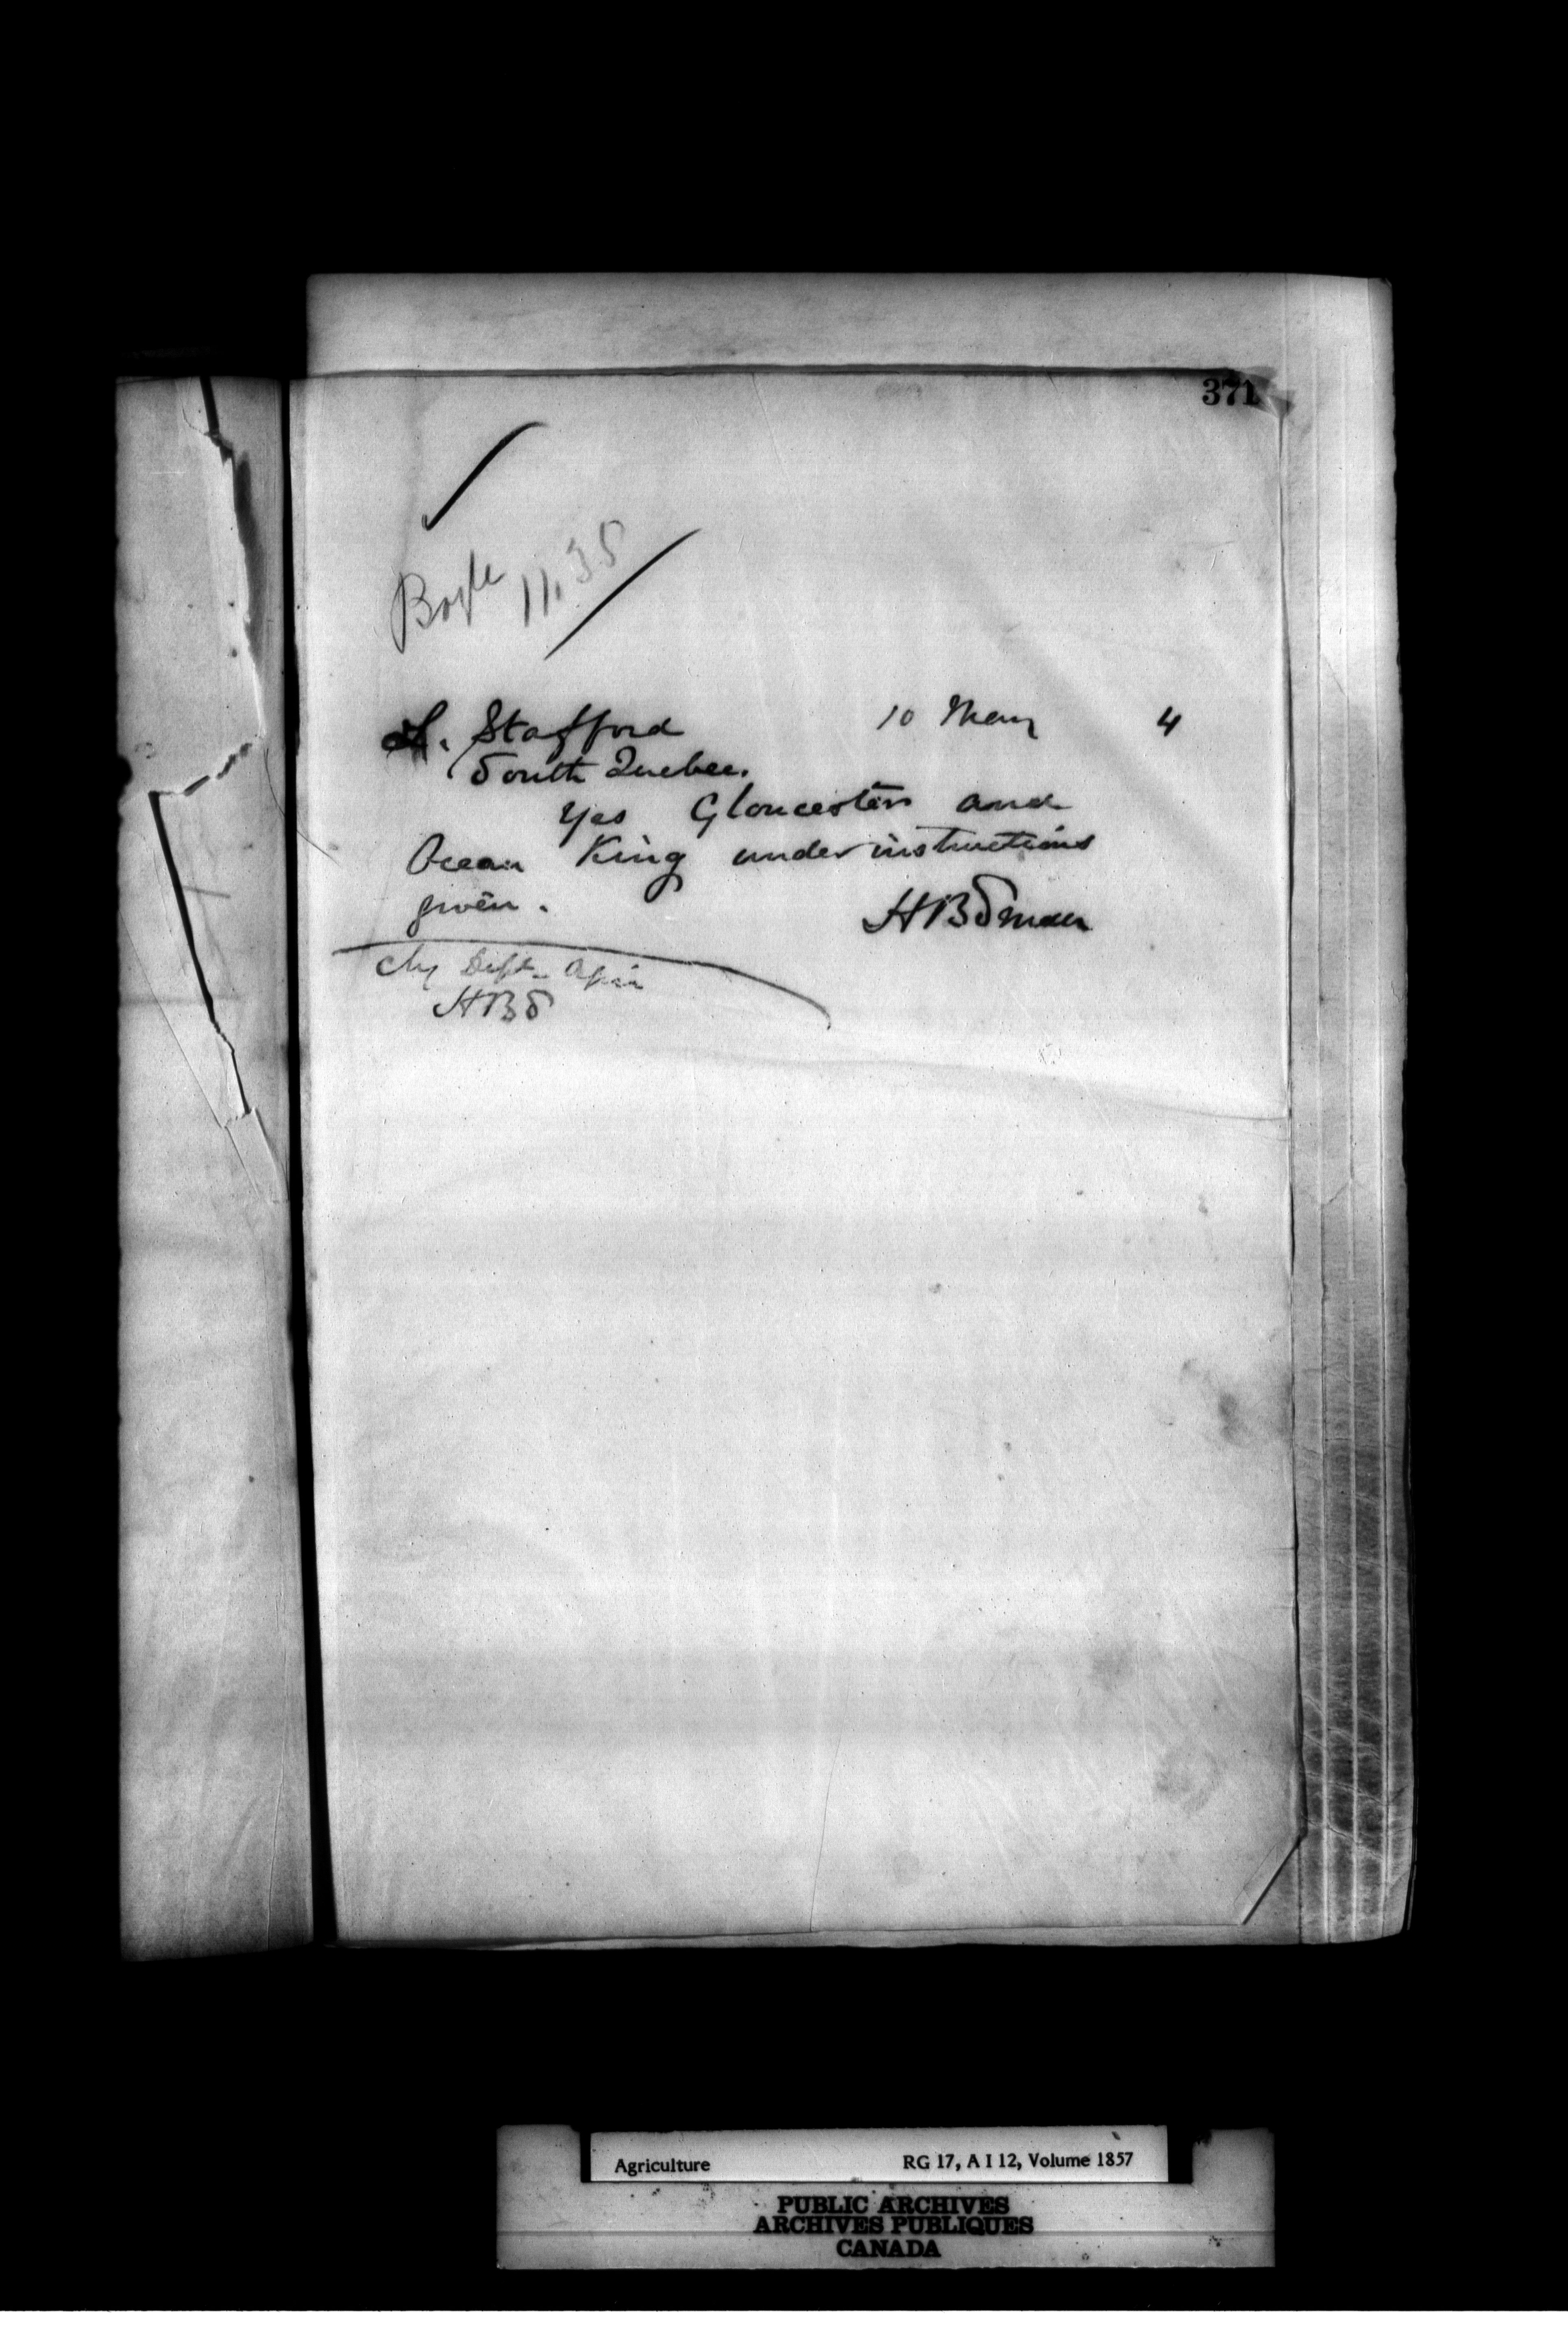 371
Boyle 11.35
L. Stafford 10 May 4
South Quebec.
Yes Gloucester and
Ocean King under instructions
given.
HBSmall
Chg Dept. Agri
HBS
Agriculture RG 17, A I 12, Volume 1857
PUBLIC ARCHIVES
ARCHIVES PUBLIQUES
CANADA